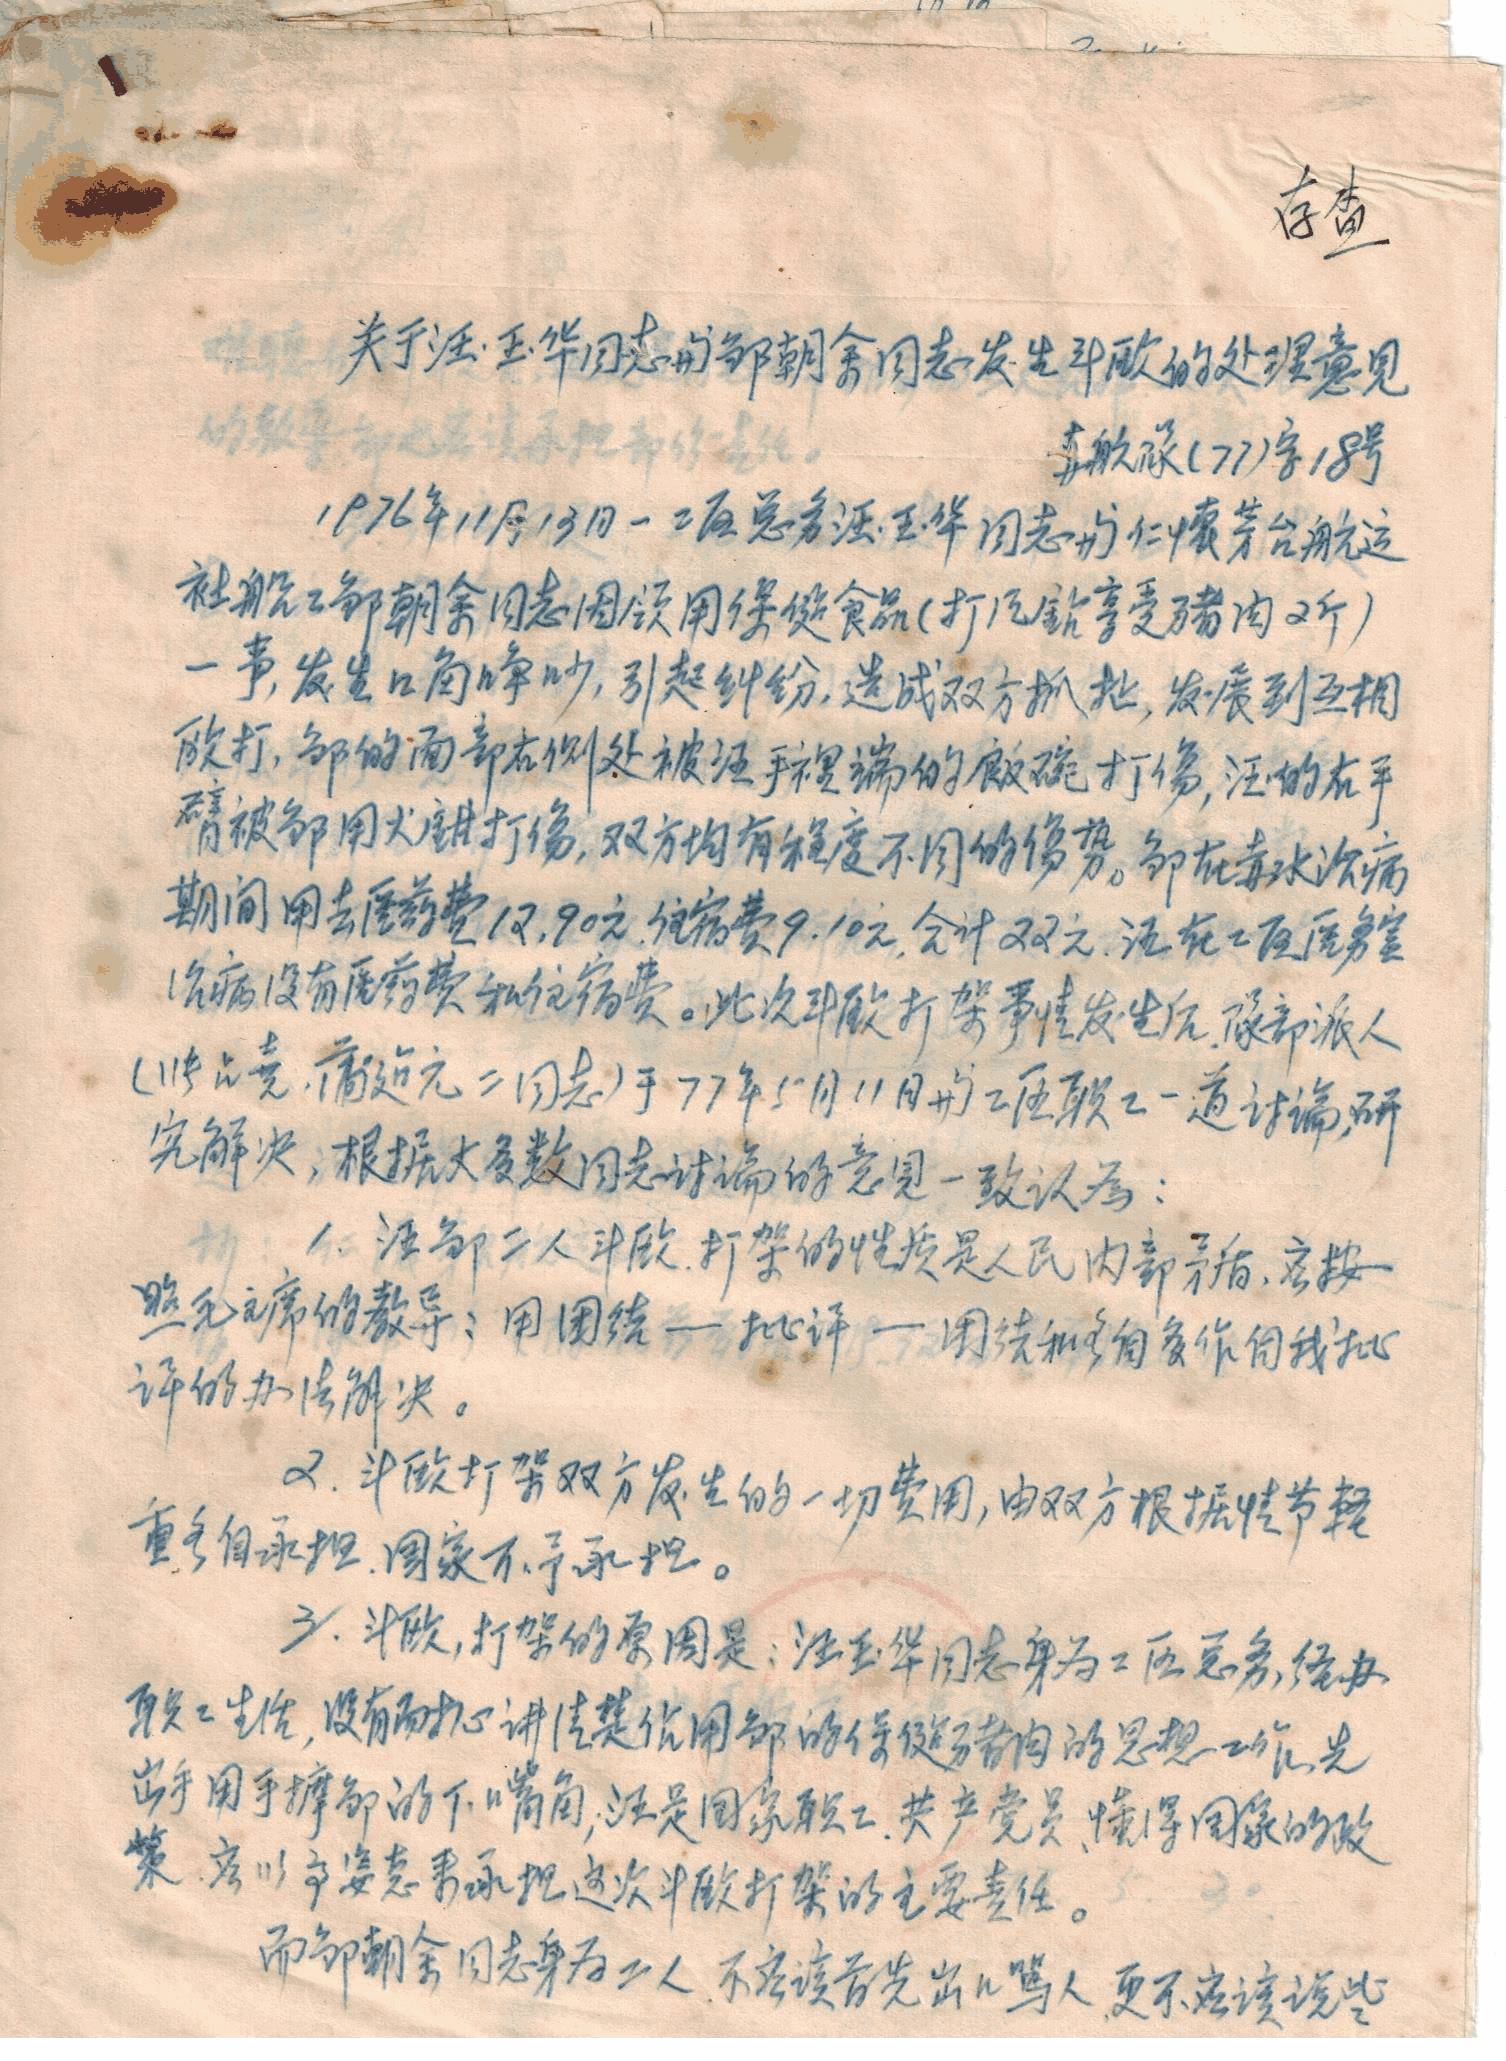 存查
关于汪玉华同志与邹朝余同志发生斗殴的处理意见
赤航隊(77)字18号
1976年11月13日一工区总务汪玉华同志与仁懷茅台航运
社船工邹朝余同志因领用保健食品(打炮眼享受猪肉2斤)
一事,发生口角争吵,引起纠纷,造成双方抓扯,发展到互相
殴打,邹的面部右侧处被汪手裡端的飯碗打伤,汪的右手
臂被邹用火钳打伤,双方均有程度不同的伤势。邹在赤水治病
期间用去医药费12.90元.住宿费9.10元,合计22元.汪在工区医务室
治病没有医药费和住宿费。此次斗殴打架事情发生后,隊部派人
(二同志)于77年5月11日与工区职工一道讨論,研
究解决;根据大多数同志讨論的意见一致认为:
1.汪邹二人斗殴.打架的性质是人民内部矛盾、应按
照毛主席的教导:用团结—批评—团结和各自多作自我批
评的办法解决。
2.斗殴打架双方发生的一切费用,由双方根据情节轻
重各自承担.国家不予承担。
3.斗殴,打架的原因是:汪玉华同志身为工区总务,经办
职工生活,没有耐心讲清楚领用邹的保健猪肉的思想工作,先
出手用手撑邹的下嘴角;汪是国家职工.共产党员、懂得国家的政
策.应以高姿态来承担这次斗殴打架的主要责任。
而邹朝余同志身为工人.不应该首先出口骂人,更不应该说些